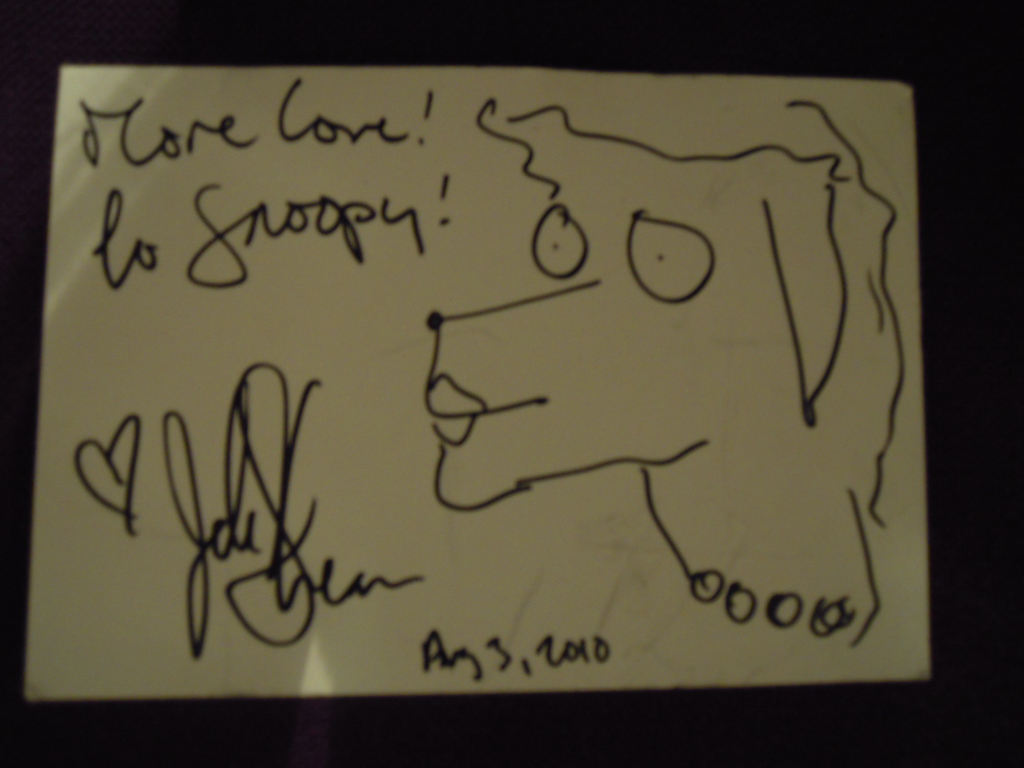 More love!
to Snoopy!
Aug 3, 2010